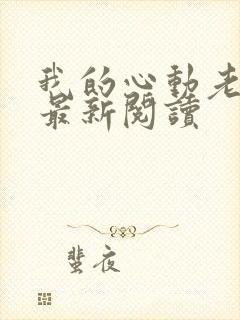 我的心動老
最新閱讀
蜚夜